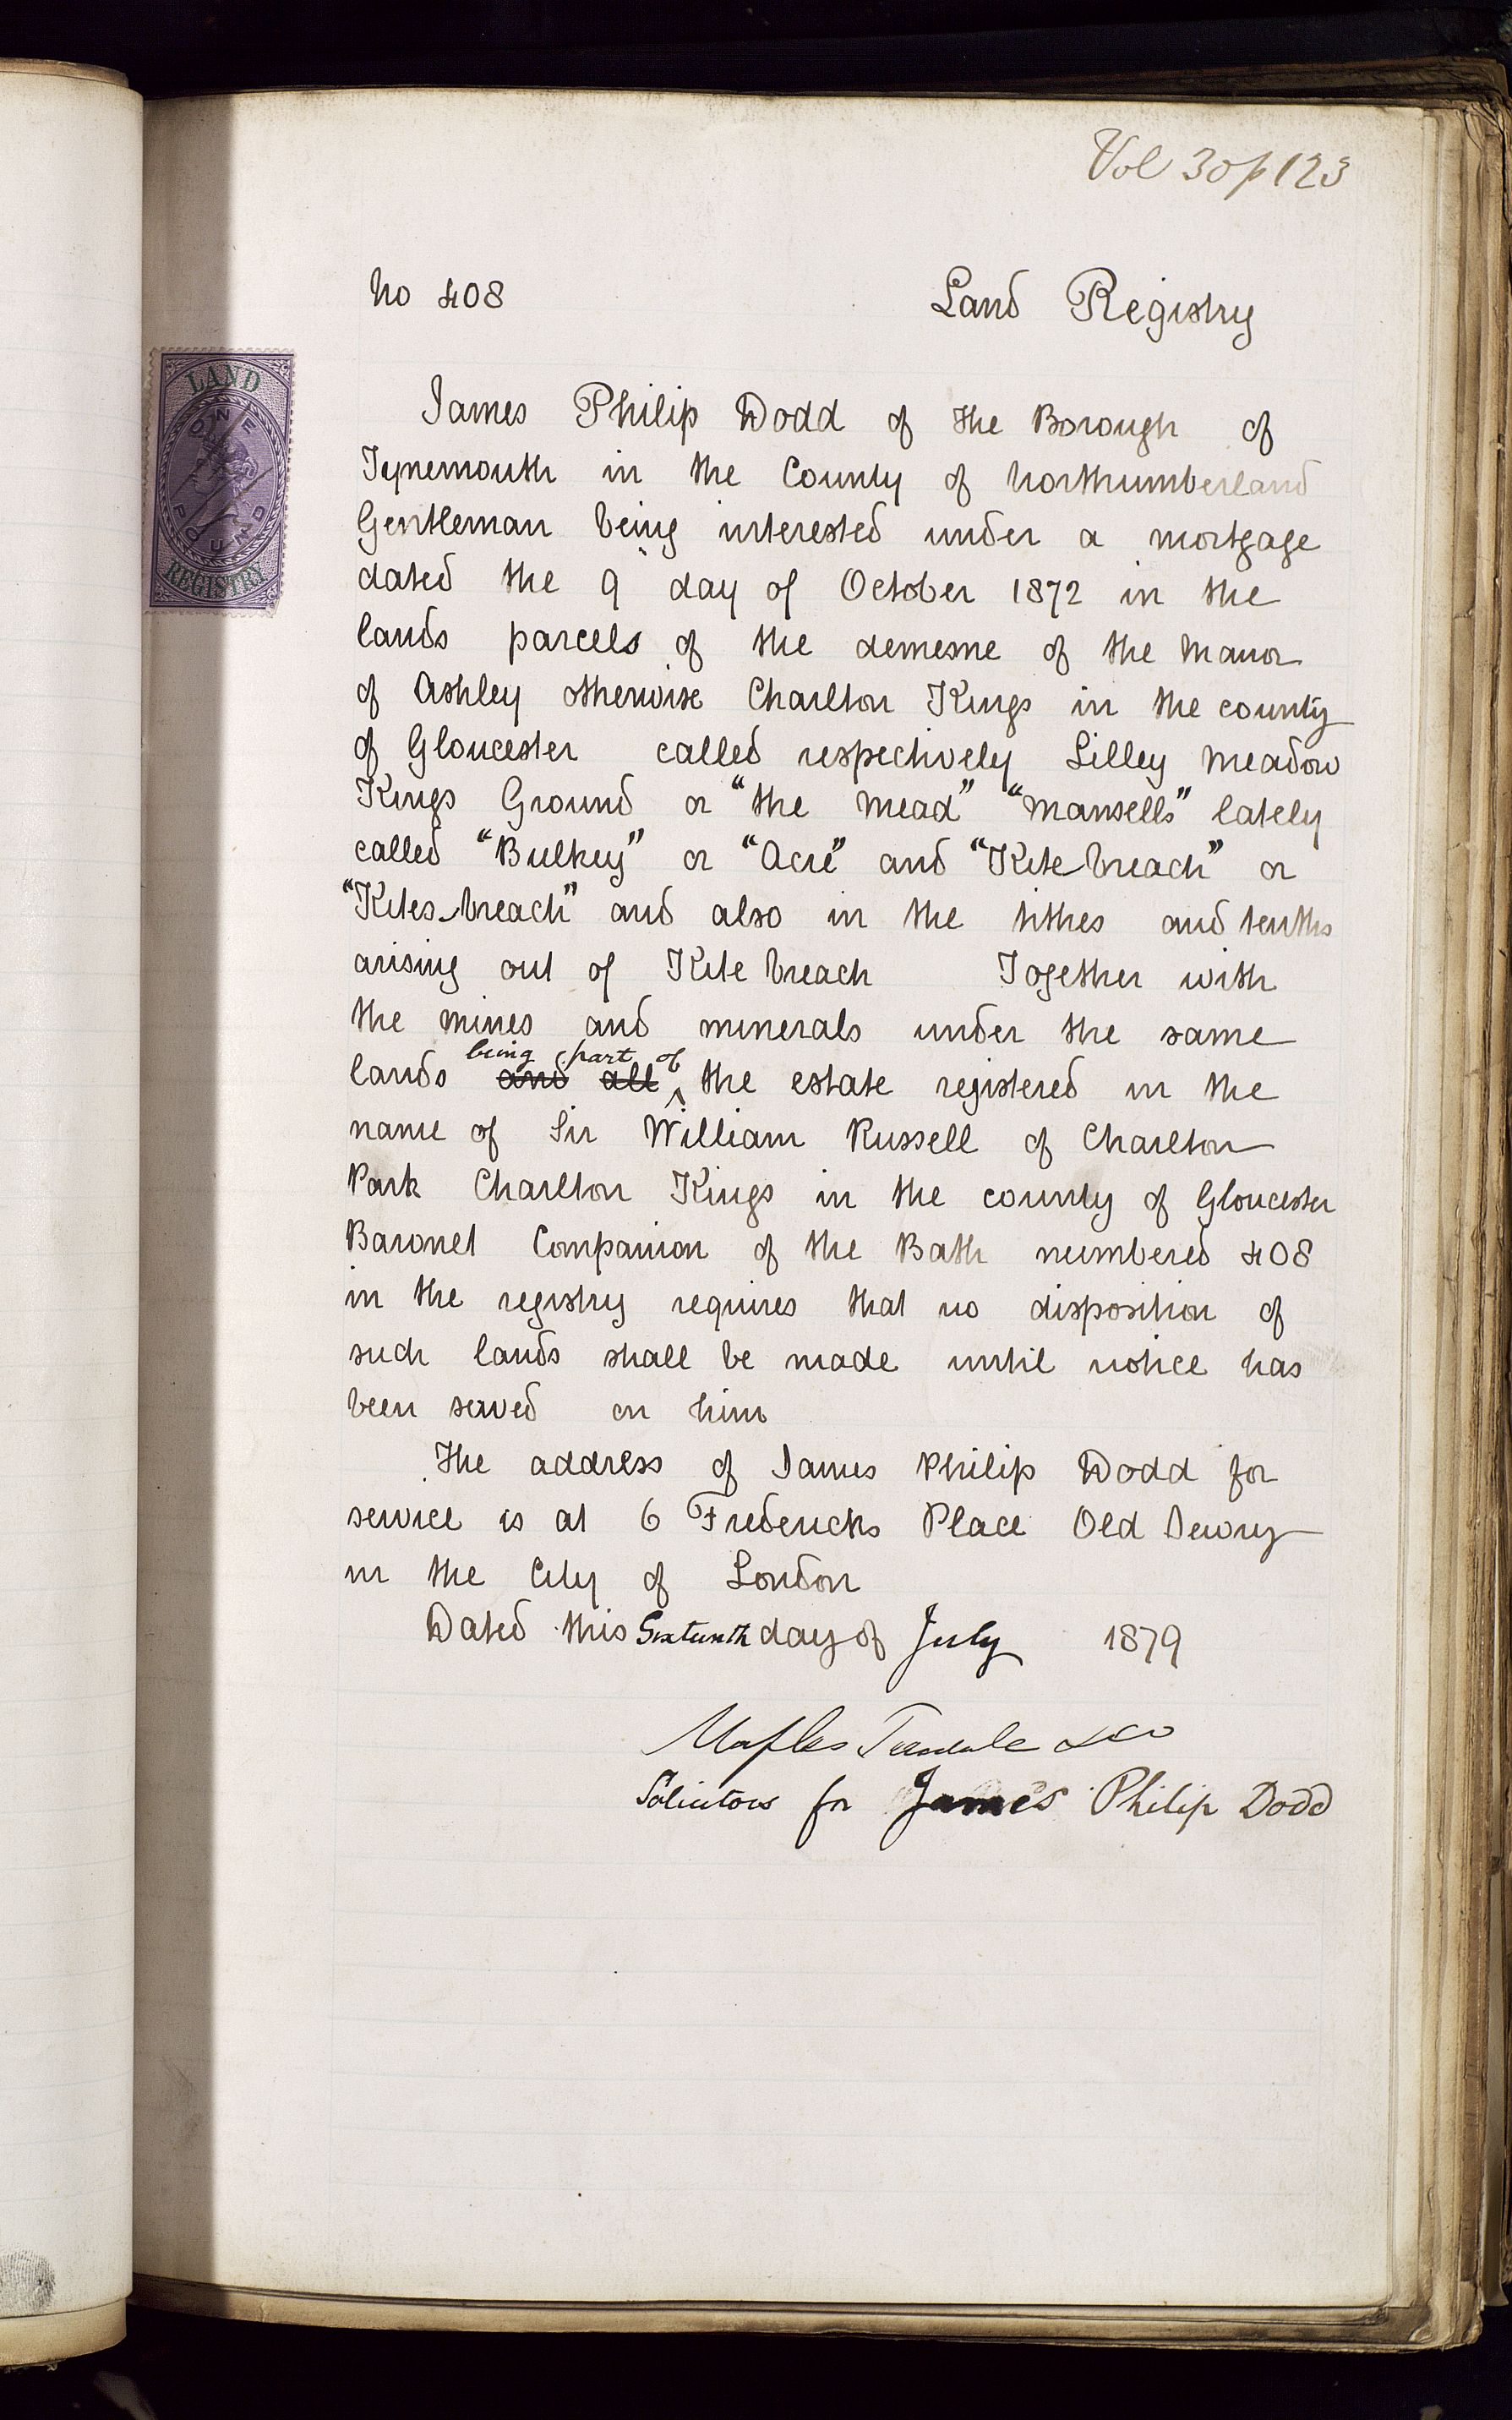 Vol 30 p 123
No 408
Land Registry
LAND
ONE
POUND
REGISTRY
James Philip Dodd of the Borough of
Tynemouth in the County of Northumberland
Gentleman being interested under a mortgage
dated the 9" day of October 1872 in the
lands parcels of the demesne of the Manor
of Ashley otherwise Charlton Kings in the county
of Gloucester called respectively Lilley Meadow
Kings Ground or "the Mead" "Mansells" lately
called "Bulkey" or "Acre" and "Kite breach" or
"Kites breach" and also in the tithes and tenths
arising out of Kite breach Together with
the mines and minerals under the same
being part of
lands and all the estate registered in the
name of Sir William Russell of Charlton
Park Charlton Kings in the county of Gloucester
Baronet Companion of the Bath numbered 408
in the registry requires that no disposition of
such lands shall be made until notice has
been served on him
The address of James Philip Dodd for
service is at 6 Fredericks Place Old Jewry
in the City of London
Dated this Sixteenth day of July 1879
Maples Teesdale & Co
Solicitors for James Philip Dodd